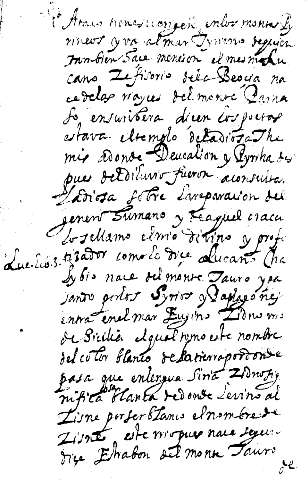 Atax tiene su origen en los montes Py
rineos y va al mar Tyrreno de quien
tambien hace mencion el mesmo Lu
cano Zefisorio de la Beocia na
ce de las rayces del monte Parna
so en su ribera dicen los poetas
estava el templo de la diosa The
mis adonde Deucalion y Pyrrha des
pues del diluvio fueron a consultar
la diosa sobre la reparacion del
genero humano y de aquel oracu
lo se llamo el rio divino y profe
tizador como lo dize Lucano Cha
Luc. lib. 3.
lybio nace del monte Tauro y pa
sando por los Syrios y
entra en el mar Euxino Zidno rrio
de Sicilia el qual tomo este nombre
del color blanco de la tierra por donde
pasa que en lengua Siria Zidno sig
nifica cosa blanca de donde le vino al
Zisne por ser blanco el nombre de
Zisne este rrio pues nace segun
dize Estrabon del monte Tauro
de